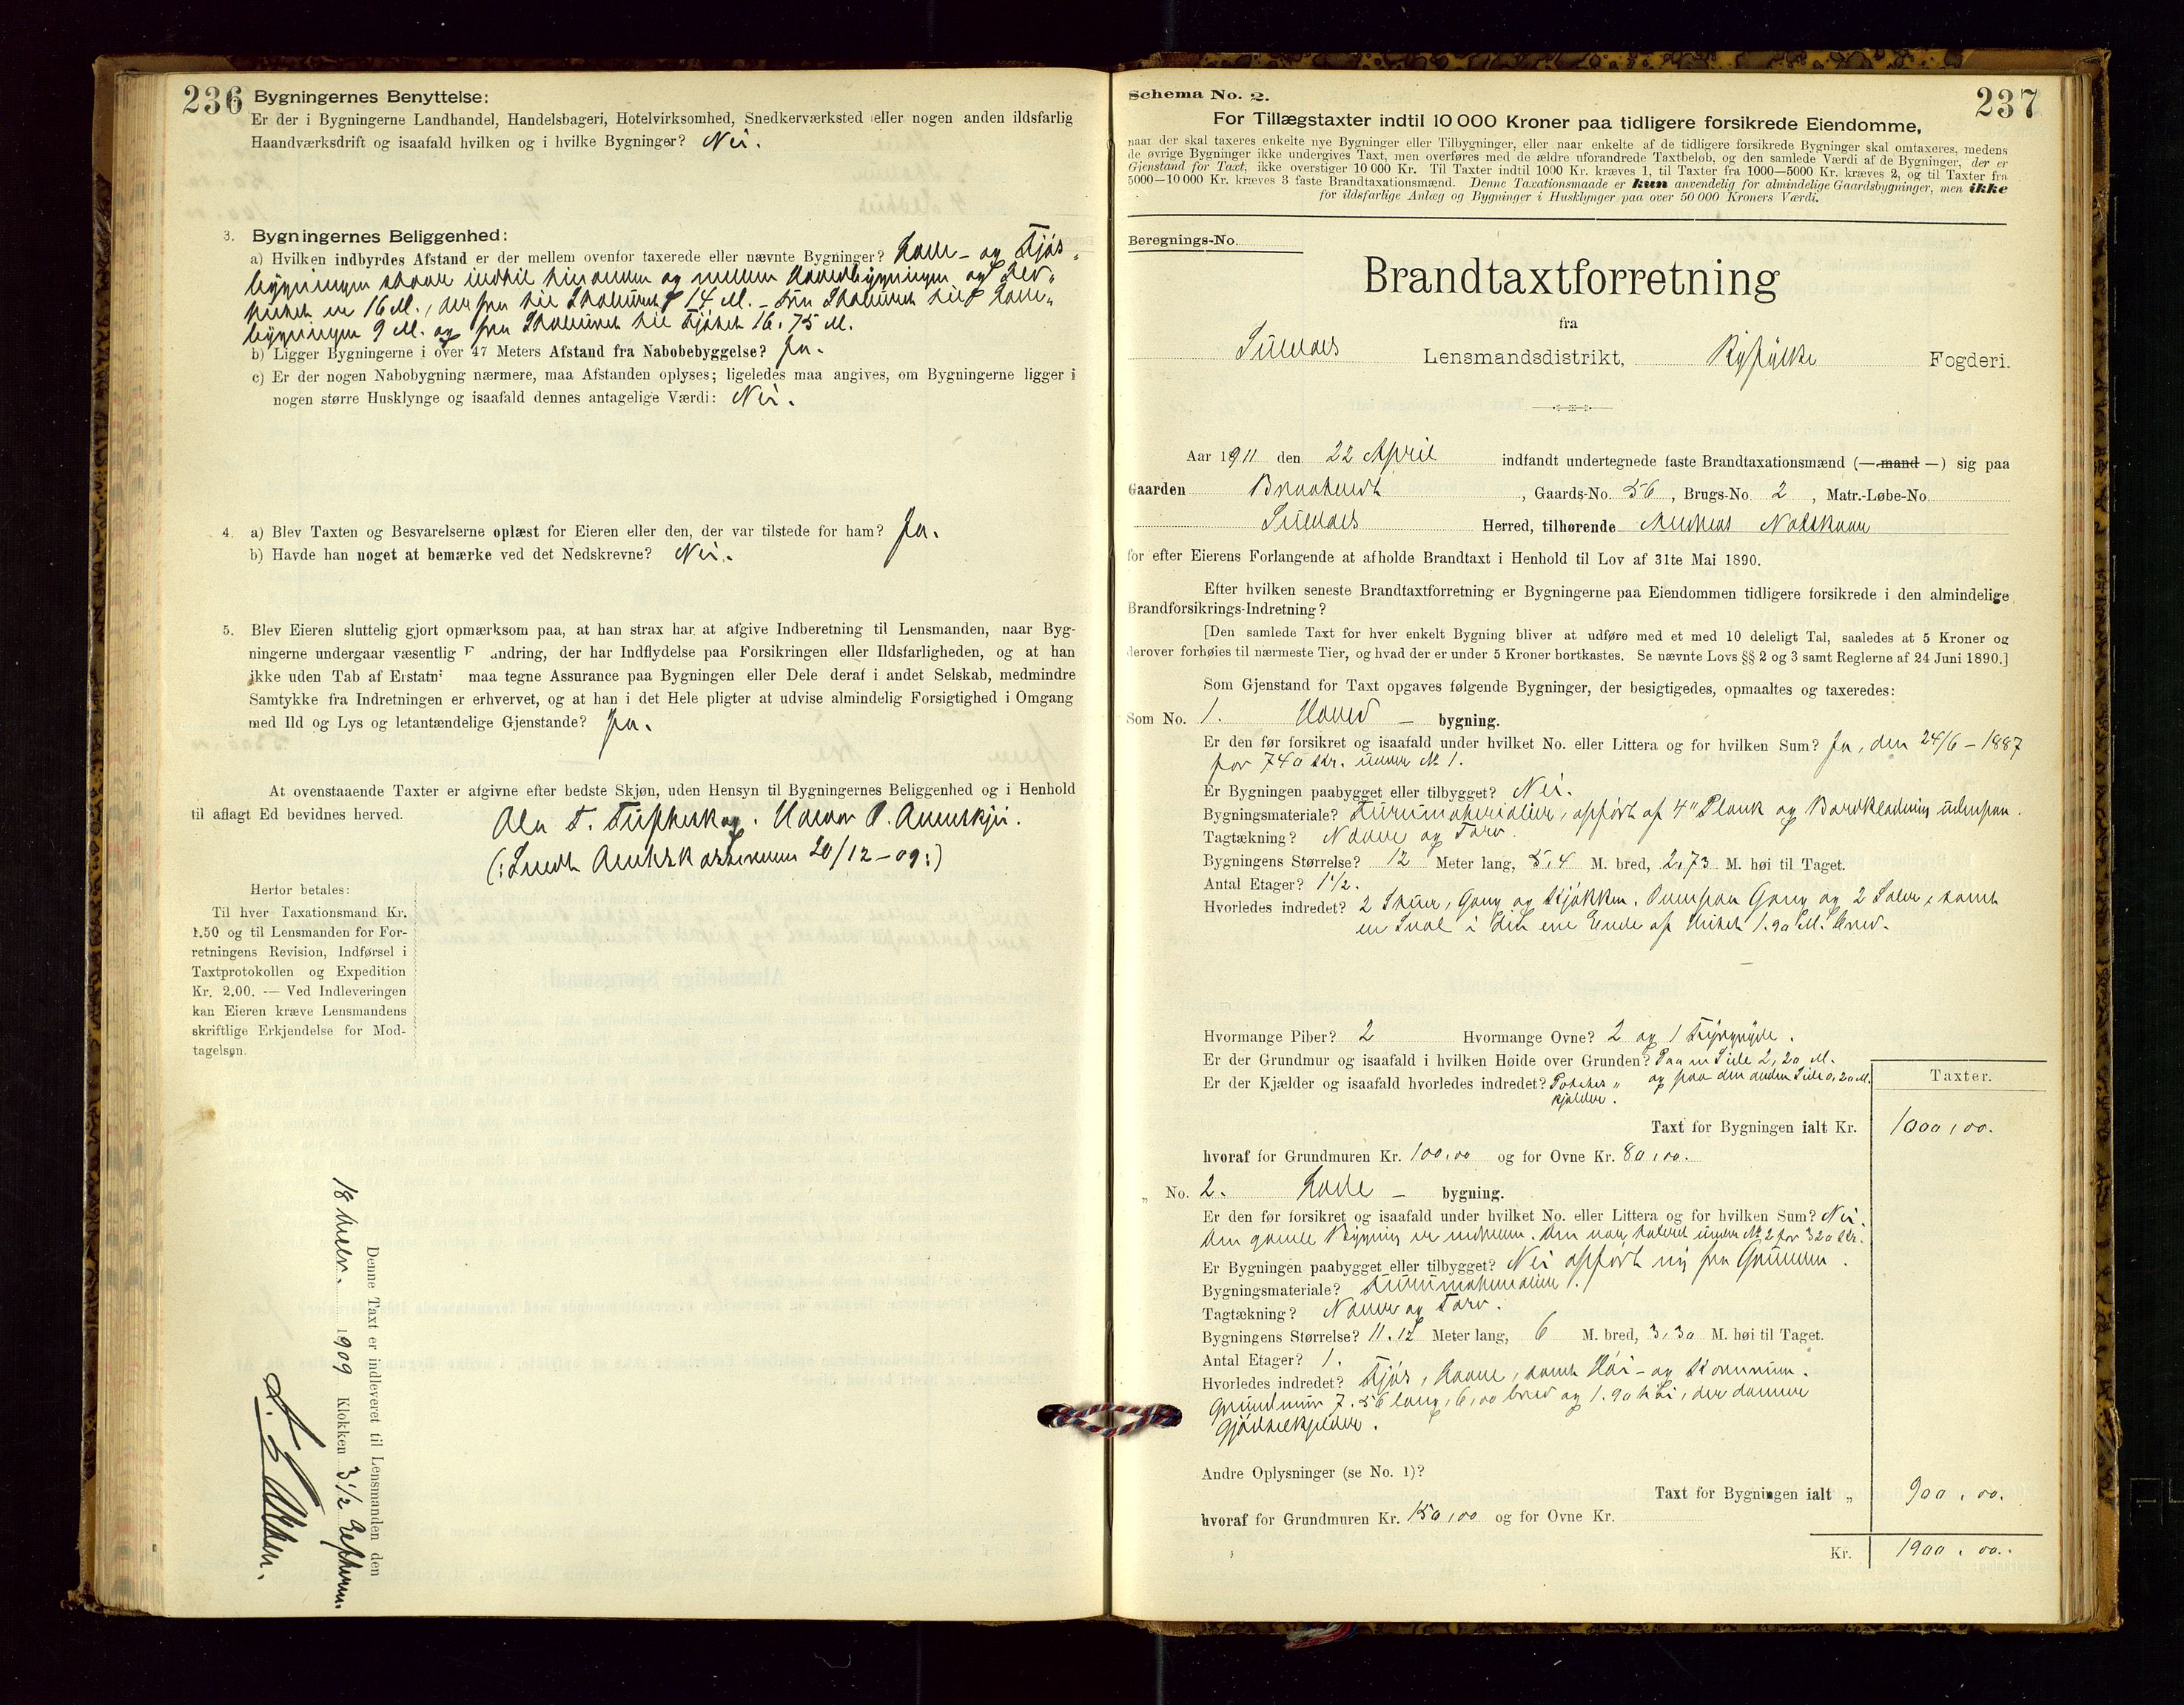 236 Bygningernes Benyttelse:
Er der i Bygningerne Landhandel, Handelsbageri, Hotelvirksomhed, Snedkerværksted eller nogen anden ildsfarlig
Haandværksdrift og isaafald hvilken og i hvilke Bygninger? Nei.
3. Bygningernes Beliggenhed:
a) Hvilken indbyrdes Afstand er der mellem ovenfor taxerede eller nævnte Bygninger? Lade- og Fjøs-
bygningen staar indtil hinanden og mellem Hovedbygningen og
er 16 M., derfra til Stabburet 14 M. - fra Stabburet til Lade-
bygningen 9 M. og fra Stabburet til Fjøset 16.75 M.
b) Ligger Bygningerne i over 47 Meters Afstand fra Nabobebyggelse? Ja.
c) Er der nogen Nabobygning nærmere, maa Afstanden oplyses; ligeledes maa angives, om Bygningerne ligger i
nogen større Husklynge og isaafald dennes antagelige Værdi: Nei.
4. a) Blev Taxten og Besvarelserne oplæst for Eieren eller den, der var tilstede for ham? Ja.
b) Havde han noget at bemærke ved det Nedskrevne? Nei.
5. Blev Eieren sluttelig gjort opmærksom paa, at han strax har at afgive Indberetning til Lensmanden, naar Byg-
ningerne undergaar væsentlig F andring, der har Indflydelse paa Forsikringen eller Ildsfarligheden, og at han
ikke uden Tab af Erstatn maa tegne Assurance paa Bygningen eller Dele deraf i andet Selskab, medmindre
Samtykke fra Indretningen er erhvervet, og at han i det Hele pligter at udvise almindelig Forsigtighed i Omgang
med Ild og Lys og letantændelige Gjenstande? Ja.
At ovenstaaende Taxter er afgivne efter bedste Skjøn, uden Hensyn til Bygningernes Beliggenhed og i Henhold
til aflagt Ed bevidnes herved.
Ola T.
(: Sendt Amtskassereren 20/12-09:)
Herfor betales:
Til hver Taxationsmand Kr.
1.50 og til Lensmanden for For-
retningens Revision, Indførsel i
Taxtprotokollen og Expedition
Kr. 2.00. — Ved Indleveringen
kan Eieren kræve Lensmandens
skriftlige Erkjendelse for Mod-
tagelsen.
Denne Taxt er indleveret til Lensmanden den
18 1909 Klokken 3 1/2 Efterm.
Schema No. 2. 237
For Tillægstaxter indtil 10 000 Kroner paa tidligere forsikrede Eiendomme,
naar der skal taxeres enkelte nye Bygninger eller Tilbygninger, eller naar enkelte af de tidligere forsikrede Bygninger skal omtaxeres, medens
de øvrige Bygninger ikke undergives Taxt, men overføres med de ældre uforandrede Taxtbeløb, og den samlede Værdi af de Bygninger, der er
Gjenstand for Taxt, ikke overstiger 10 000 Kr. Til Taxter indtil 1000 Kr. kræves 1, til Taxter fra 1000—5000 Kr. kræves 2, og til Taxter fra
5000—10 000 Kr. kræves 3 faste Brandtaxationsmænd. Denne Taxationsmaade er kun anvendelig for almindelige Gaardsbygninger, men ikke
for ildsfarlige Anlæg og Bygninger i Husklynger paa over 50 000 Kroners Værdi.
Beregnings-No.
Brandtaxtforretning
fra
Suldals Lensmandsdistrikt, Ryfylke Fogderi.
Aar 1911 den 22 April indfandt undertegnede faste Brandtaxationsmænd (— mand —) sig paa
Gaarden , Gaards-No. 56, Brugs-No. 2, Matr.-Løbe-No.
Suldals Herred, tilhørende
for efter Eierens Forlangende at afholde Brandtaxt i Henhold til Lov af 31te Mai 1890.
Efter hvilken seneste Brandtaxtforretning er Bygningerne paa Eiendommen tidligere forsikrede i den almindelige
Brandforsikrings-Indretning?
[Den samlede Taxt for hver enkelt Bygning bliver at udføre med et med 10 deleligt Tal, saaledes at 5 Kroner og
derover forhøies til nærmeste Tier, og hvad der er under 5 Kroner bortkastes. Se nævnte Lovs §§ 2 og 3 samt Reglerne af 24 Juni 1890.]
Som Gjenstand for Taxt opgaves følgende Bygninger, der besigtigedes, opmaaltes og taxeredes:
Som No. 1. Hoved — bygning.
Er den før forsikret og isaafald under hvilket No. eller Littera og for hvilken Sum? Ja, den 24/6 - 1887
for 740 Kr. under № 1.
Er Bygningen paabygget eller tilbygget? Nei.
Bygningsmateriale? Furumaterialier, opført af 4" Plank og Bordklædning udenpaa.
Tagtækning? Næver og Torv.
Bygningens Størrelse? 12 Meter lang, 5,4 M. bred, 2,73 M. høi til Taget.
Antal Etager? 1 1/2.
Hvorledes indredet? 2 Stuer, Gang og Kjøkken. Ovenpaa Gang og 2 Saler, samt
en Sval i den ene Ende af Huset 1.90 M. bred.
Hvormange Piber? 2 Hvormange Ovne? 2 og 1 Frygryde.
Er der Grundmur og isaafald i hvilken Høide over Grunden? Paa en Side 2,20 M.
og paa den anden Side 0,20 M.
Er der Kjælder og isaafald hvorledes indredet? Potetes-
kjælder.
Taxter.
Taxt for Bygningen ialt Kr. 1000,00.
hvoraf for Grundmuren Kr. 100,00 og for Ovne Kr. 80,00.
„ No. 2. Lade — bygning.
Er den før forsikret og isaafald under hvilket No. eller Littera og for hvilken Sum? Nei.
Den gamle Bygning er nedreven. Den var taxeret under № 2 for 320 Kr.
Er Bygningen paabygget eller tilbygget? Nei opført ny fra Grunden.
Bygningsmateriale? Furumaterialier.
Tagtækning? Næver og Torv.
Bygningens Størrelse? 11.12 Meter lang, 6 M. bred, 3,30 M. høi til Taget.
Antal Etager? 1.
Hvorledes indredet? Fjøs, Laave, samt Høi- og Kornrum.
Grundmur 7.56 lang, 6,00 bred og 1.90 høi, der danner
Gjødselkjelder.
Andre Oplysninger (se No. 1)?
Taxt for Bygningen ialt „ 900,00.
hvoraf for Grundmuren Kr. 150,00 og for Ovne Kr.
Kr. 1900,00.